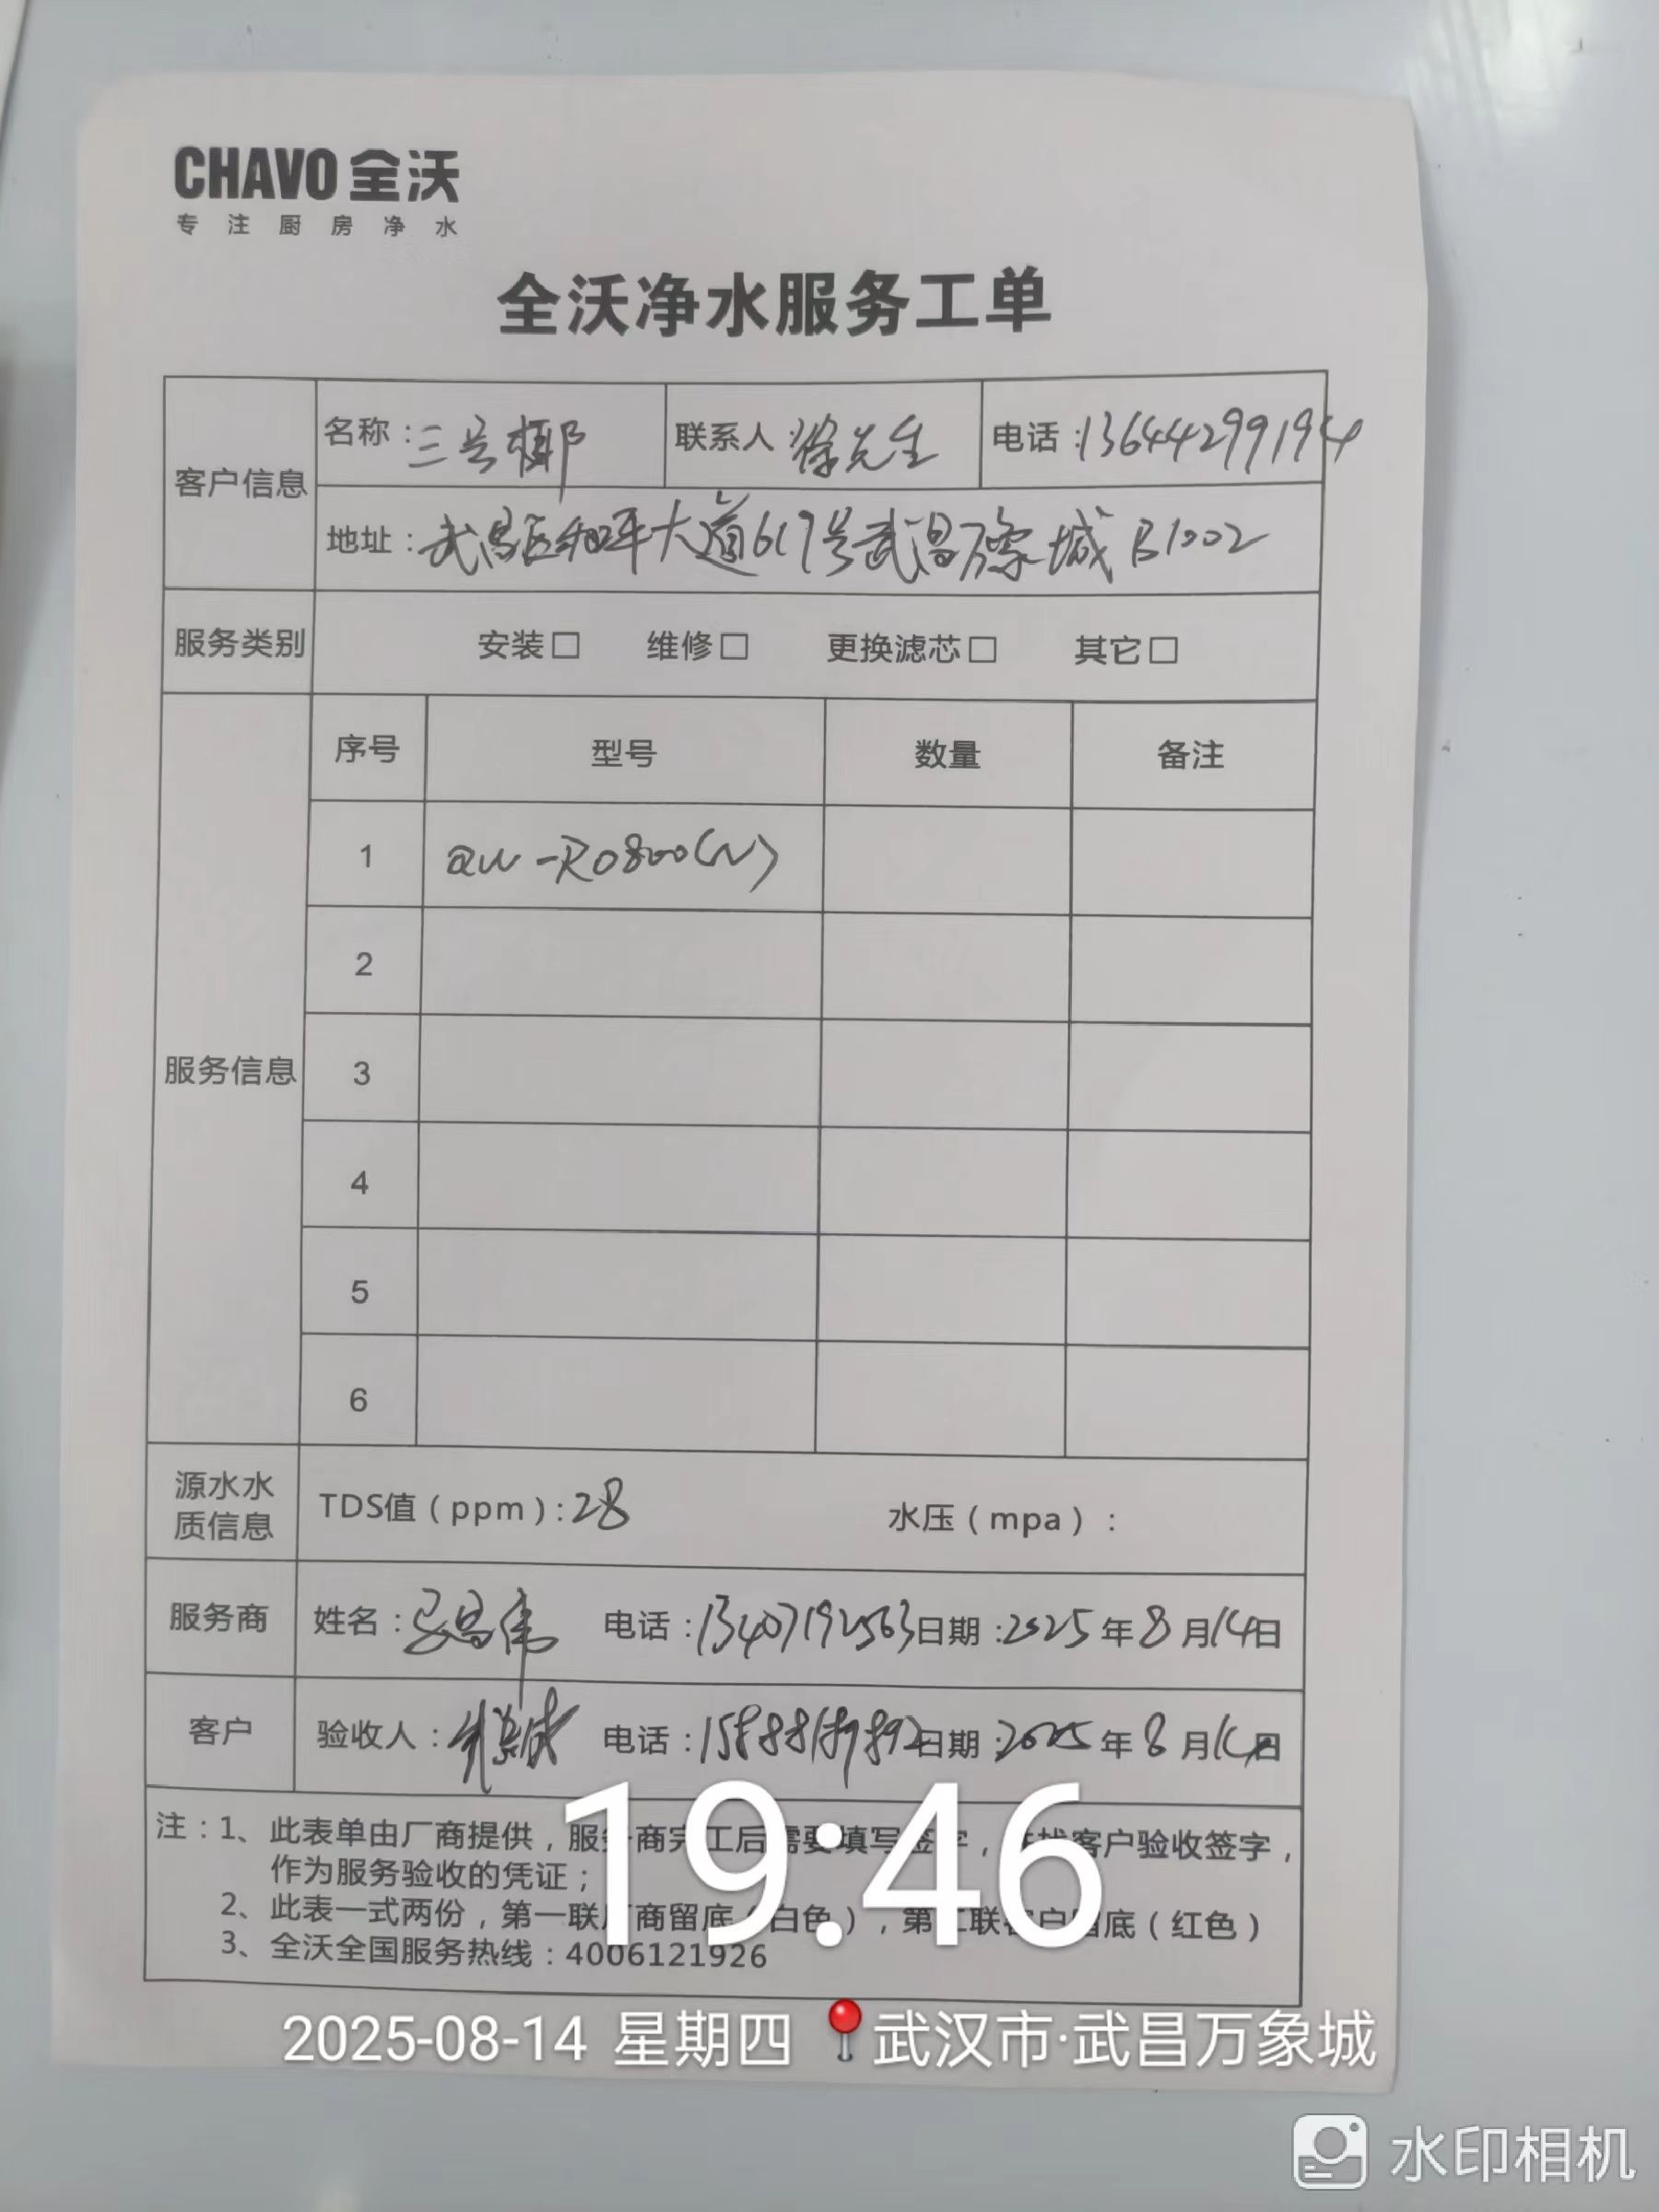 CHAVO全沃
专注厨房净水
全沃净水服务工单
客户信息
名称：三号椰 联系人：徐先生 电话：13644299194
地址：武昌区和平大道617号武昌万象城B1002
服务类别 安装□ 维修□ 更换滤芯□ 其它□
服务信息
序号 型号 数量 备注
1 QW-RO800(N)
2
3
4
5
6
源水水质信息 TDS值（ppm）：28 水压（mpa）：
服务商 姓名： 电话：13407192563 日期：2025年8月14日
客户 验收人： 电话： 日期：2025年8月14日
注：1、此表单由厂商提供，服务商完工后需要填写签字，并找客户验收签字，
作为服务验收的凭证；
2、此表一式两份，第一联厂商留底（白色），第二联客户留底（红色）
3、全沃全国服务热线：4006121926
19:46
2025-08-14 星期四 武汉市·武昌万象城
水印相机